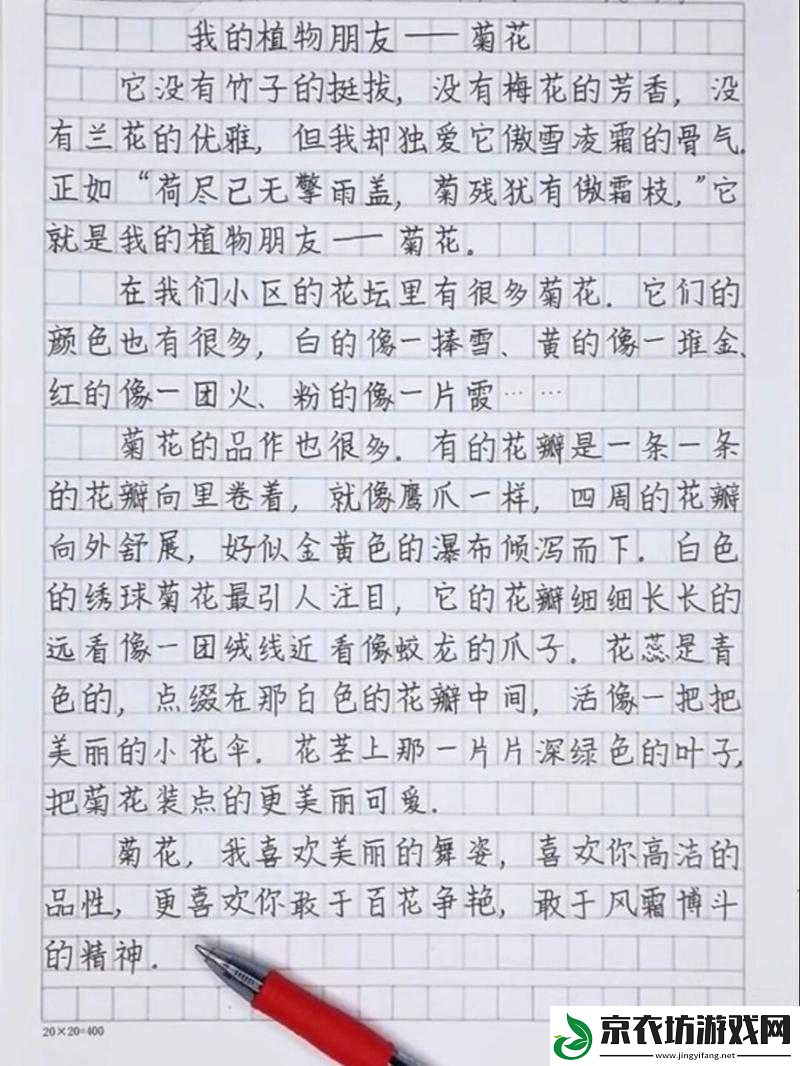 我的植物朋友——菊花
它没有竹子的挺拔,没有梅花的芳香,没
有兰花的优雅,但我却独爱它傲雪凌霜的骨气.
正如“荷尽已无擎雨盖,菊残犹有傲霜枝,”它
就是我的植物朋友——菊花。
在我们小区的花坛里有很多菊花.它们的
颜色也有很多,白的像一捧雪、黄的像一堆金、
红的像一团火、粉的像一片霞……
菊花的品作也很多.有的花瓣是一条一条
的花瓣向里卷着,就像鹰爪一样,四周的花瓣
向外舒展,好似金黄色的瀑布倾泻而下.白色
的绣球菊花最引人注目,它的花瓣细细长长的
远看像一团绒线近看像蛟龙的爪子.花蕊是青
色的,点缀在那白色的花瓣中间,活像一把把
美丽的小花伞.花茎上那一片片深绿色的叶子,
把菊花装点的更美丽可爱.
菊花,我喜欢美丽的舞姿,喜欢你高洁的
品性,更喜欢你敢于百花争艳,敢于风霜博斗
的精神.
20×20=400
京农坊游戏网
www.jingyifang.net